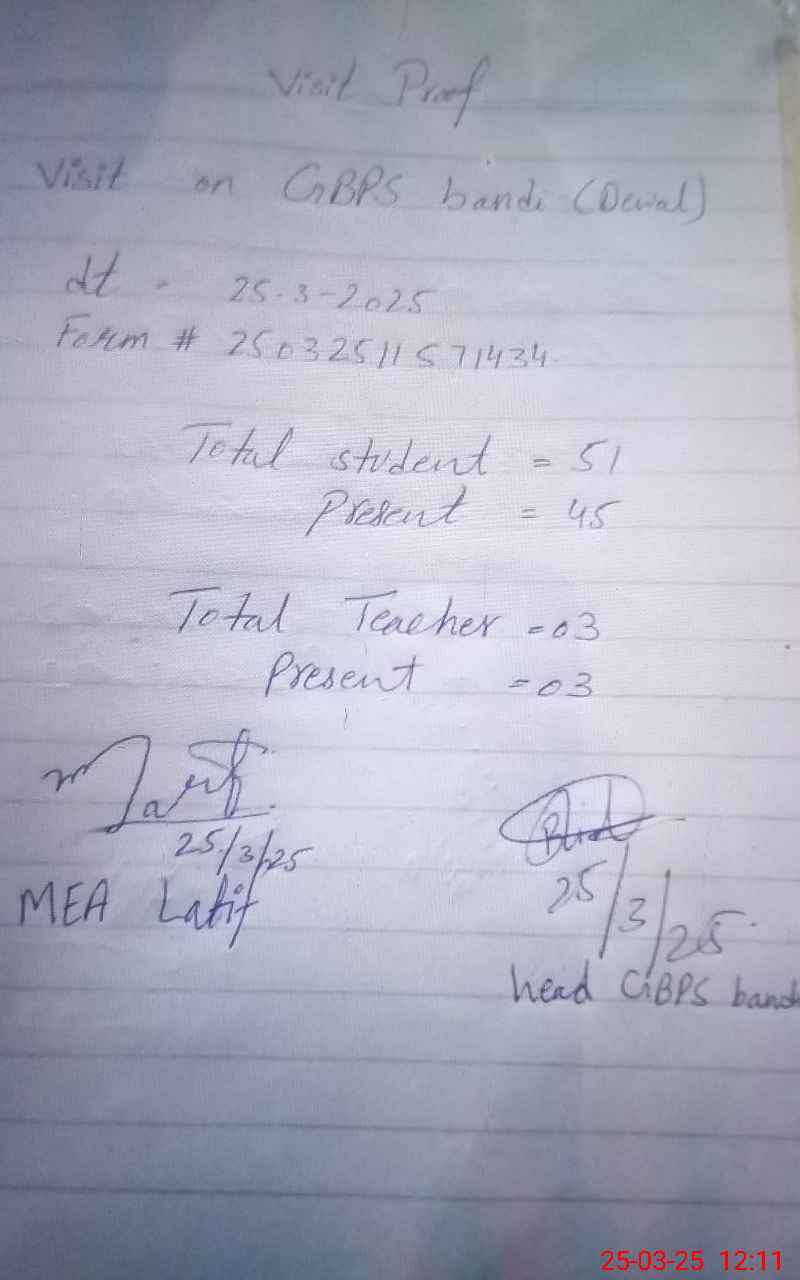 Visit Proof
Visit on GBPS bandi (Dewal)
dt - 25-3-2025
Form # 25032511571434
Total student = 51
Present = 45
Total Teacher = 03
Present = 03
25/3/25
MEA Latif
25/3/25
head GBPS bandi
25-03-25 12:11